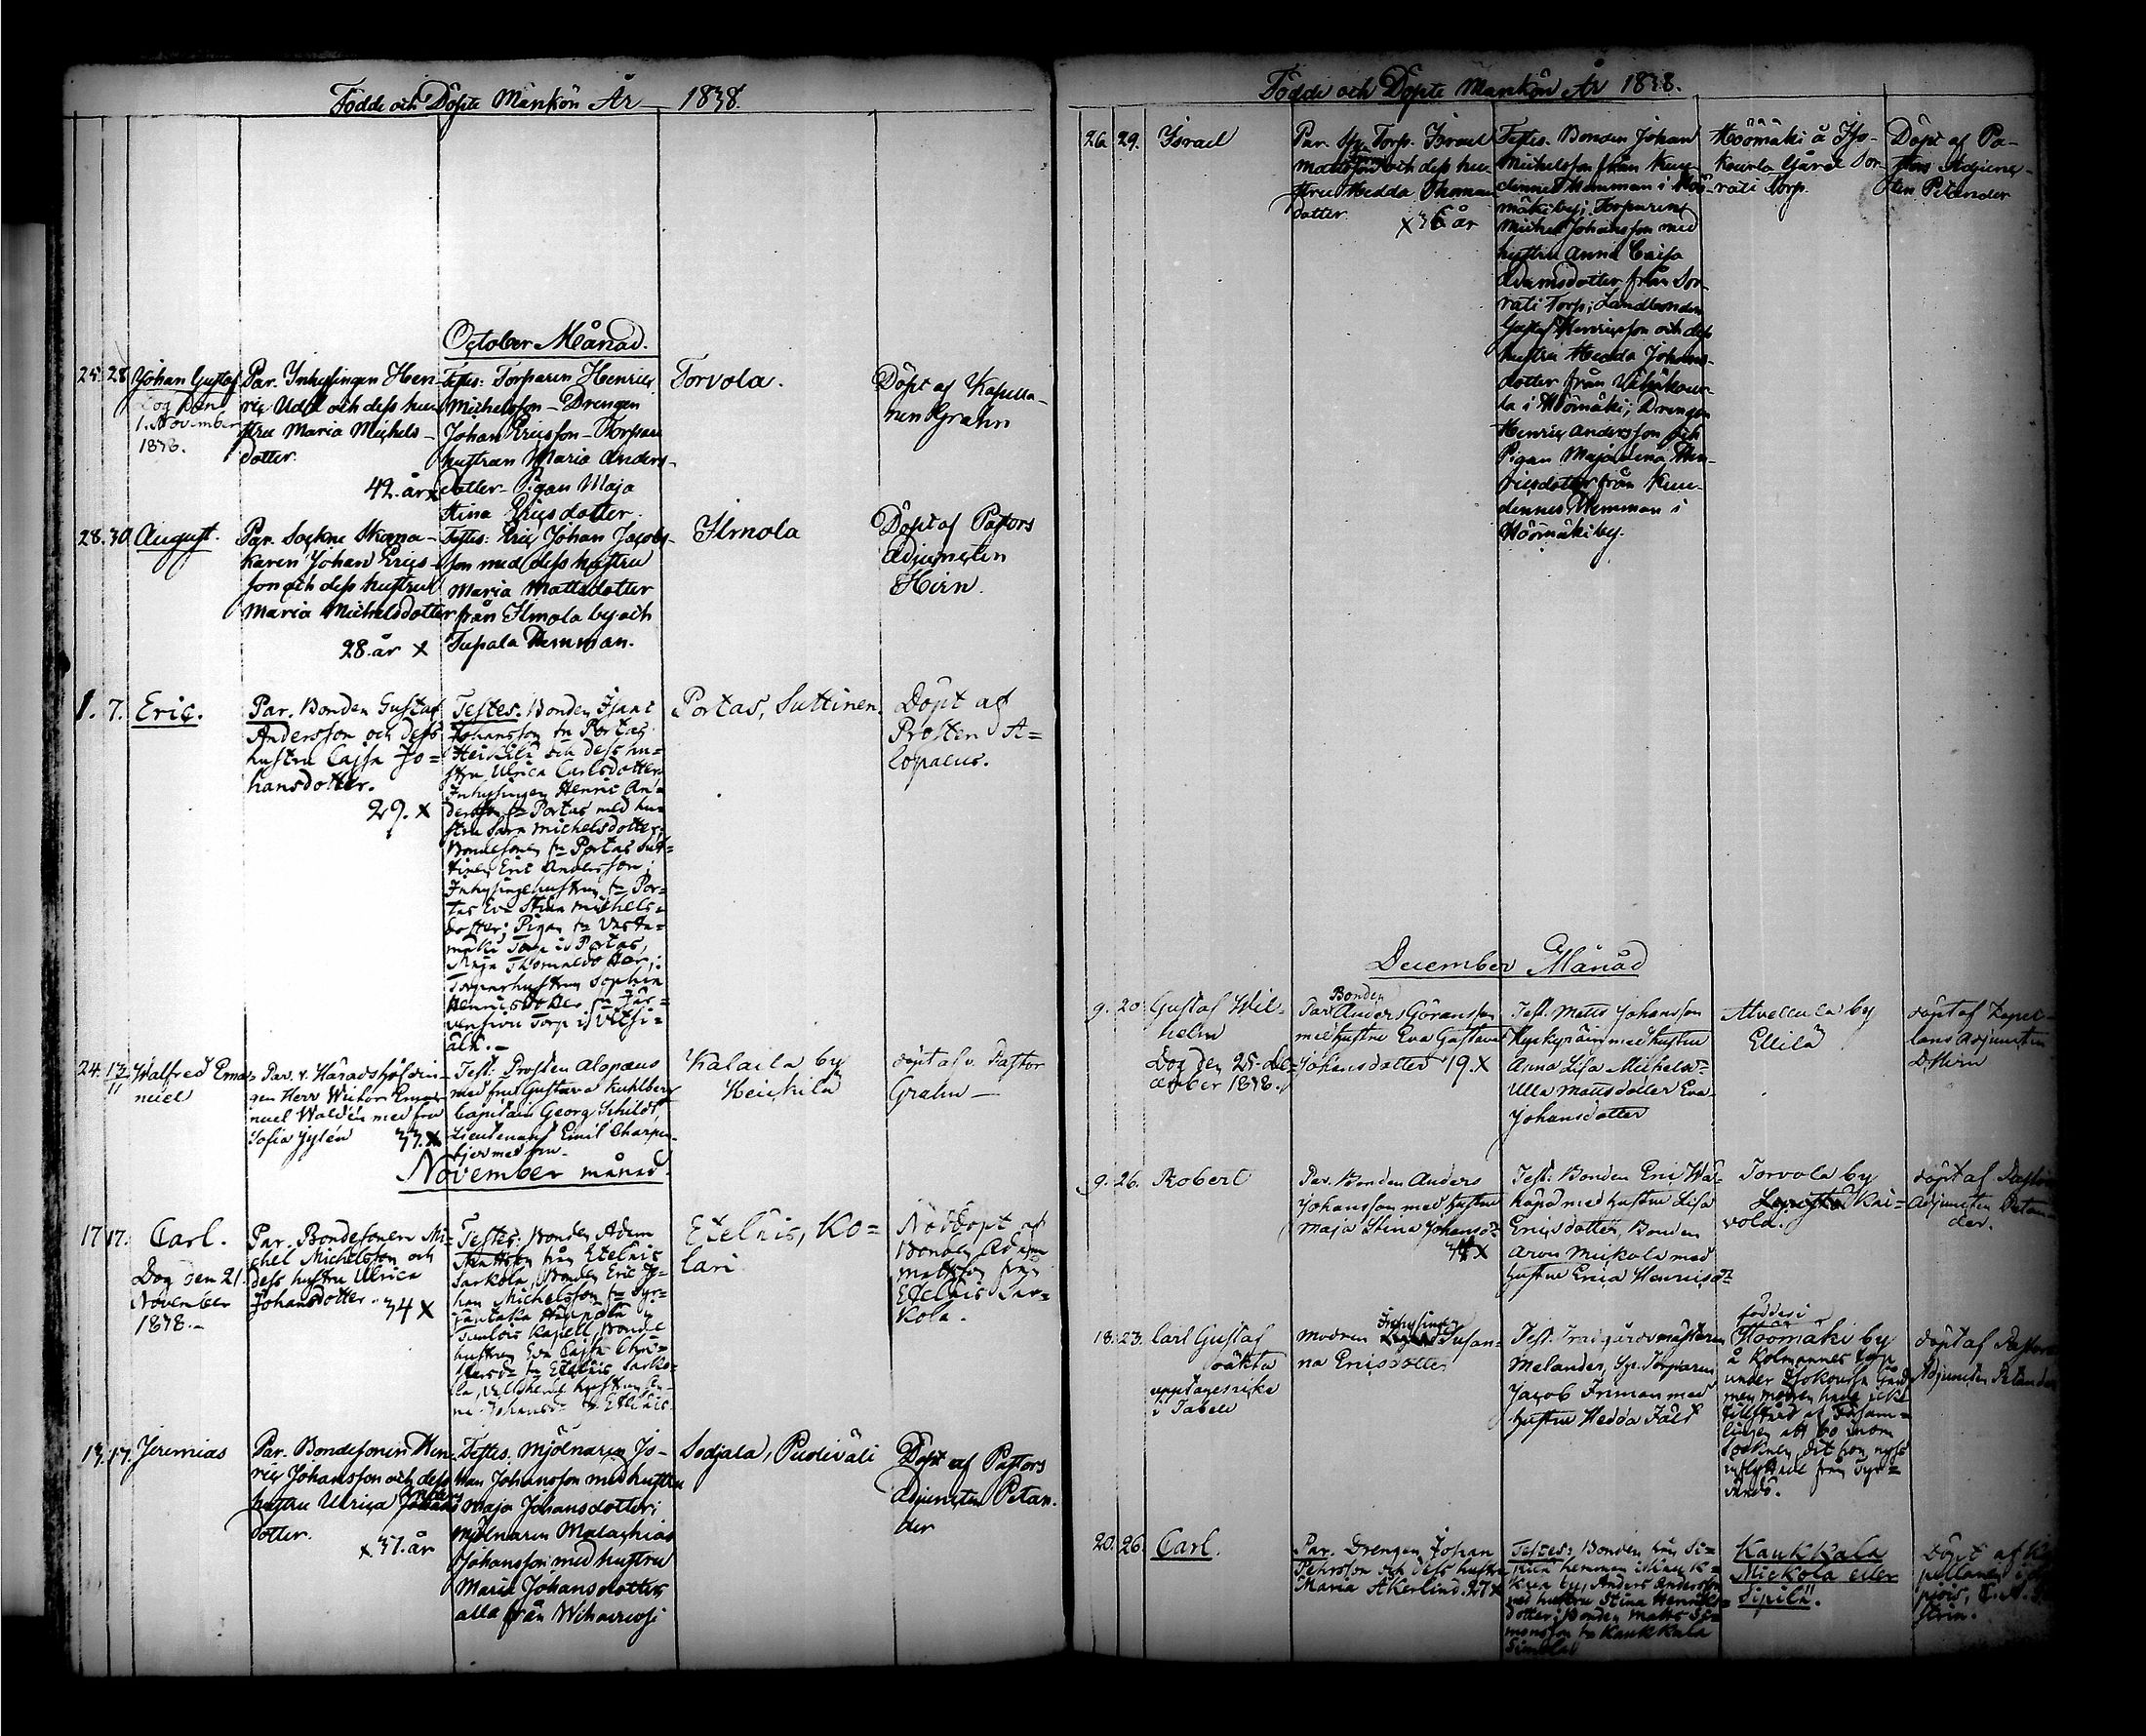 Födde och Döpte Mankön År 1838.
October Månad.
25. 28. Johan Gustaf
Dog den
1. November
1838.
Par. Inhysingen Hen-
ric Udd och dess hu-
stru Maria Michels-
dotter.
42. år x
Testes: Torparen Henric
Michelsson - Drengen
Johan Ericsson - Torpare
hustrun Maria Anders-
dotter - Pigan Maja
Stina Ericsdotter.
Torvola.
Döpt af Kapella-
nen Grahn
28. 30. August.
Par. Sockne Skoma-
karen Johan Erics-
son och dess hustru
Maria Michelsdotter
28. år x
Testes: Eric Johan Jacobs-
son med dess hustru
Maria Mattsdotter
från Ilmola by och
Tupala Hemman.
Ilmola
Döpt af Pastors
Adjuncten
Hirn.
1. 7. Eric.
Par. Bonden Gustaf
Andersson och dess
hustru Cajsa Jo=
hansdotter.
29. x
Testes: Bonden Isaac
Johansson fn Portas
Heikilä och dess hu=
stru Ulrica Carlsdotter
Inhysingen Henric An=
dersson fn Portas med hu=
stru Sara Michelsdotter;
Bondesonen fn Portas Sut=
tinen Eric Andersson;
Inhysingehustrun fn Por=
tas Eva Stina Michels=
dotter; Pigan fn
Torp i Portas,
Maja Thomasdotter;
Torparhustrun Sophia
Henricsdotter fn Jär=
Torp i
Portas, Suttinen.
Döpt af
Prosten A=
lopaeus.
24. 13/11 Walfred Ema-
nuel
Par. v. Häradshöfdin-
gen Herr Ema-
nuel Waldén med fru
Sofia Gylén 33. x
Test: Prosten Alopæus
med fru Gustava Kuhlberg
Capitain Georg Schildt,
Lieutenant Emil Charpen-
tier med fru.
Kalaila by
Heickilä
döpt af v. Pastor
Grahn
November månad.
17. 17. Carl.
Dog den 21
November
1838.
Par. Bondesonen Mi-
chel Michelsson och
dess hustru Ulrica
Johansdotter. 34 x
Testes: Bonden Adam
Mattsson från Etelnis
Sarkola, Bonden Eric Jo=
han Michelsson fn
Kapell, Bonde
hustrun Eva Cajsa
fn Etelnis Sarko=
la, hustrun An=
na Johansdr fn Etelnis.
Etelnis, Ko=
lari
Nöddöpt af
Bonden Adam
Mattsson från
Etelnis Sar=
kola.
13. 17. Jeremias
Par. Bondesonen Hen-
ric Johansson och dess
hustru Ulrica
dotter.
x 31. år
Testes: Mjölnaren Jo-
han Johansson med hustru
Maja Johansdotter;
Mjölnaren Malachias
Johansson med hustru
Maria Johansdotter,
alla från
Sodjala, Pudiväli
Döpt af Pastors
Adjuncten Petan-
der
Födde och Döpte Mankön År 1838.
26. 29. Israel
Par. Torp. Israel
Mattsson och dess hu-
stru Hedda Thomas
dotter
x 36 år
Testes. Bonden Johan
Michelsson från Kuu-
dennes Hemman i Höö-
mäki by; Torparen
Michel Johansson med
hustru Anna Caisa
Adamsdotter från Sor-
vati Torp; Landbonden
Gustaf Henricsson och dess
hustru Hedda Johans-
dotter från
la i Höömäki; Drengen
Henric Andersson och
Pigan Maja Lena Hen-
ricsdotter från Kuu-
dennes Hemman i
Höömäki by.
Höömäki å Iso-
kourla Gård Sor-
vati Torp.
Döpt af Pa-
stors Adjunc-
ten Petander
December Månad
9. 20. Gustaf Wil-
helm
Dog den 25. de-
cember 1838.
Bonden
Par. Anders Göransson
med hustru Eva Gustava
Johansdotter 19. x
Test. Matts Johansson
med hustru
Anna Lisa Michelsdr
Ulla Mattsdotter Eva
Johansdotter
Alvettula by
Ellilä
döpt af Capel-
lans Adjuncten
Hirn
9. 26. Robert
Par. Bonden Anders
Johansson med hustru
Maja Stina Johansdr
34 x
Test: Bonden Eric Wä-
häpä med hustru Lisa
Ericsdotter, Bonden
Aron Mickola med
hustru Erica Henricsdr
Torvola by
Kni-
vola.
döpt af Pastors
Adjuncten Petan-
der.
18. 23. Carl Gustaf
oäkta
upptages icke
i Tabell
Inhysingen
Modren Susan-
na Ericsdotter
Test. Trädgårdsmästaren
Melander, Sy. Torparen
Jacob Friman med
hustru Hedda Fält
föddes i
Höömäki by
å Kolmannes torp
under Isokourla Gård
men modren hade icke
tillstånd af Försam=
lingen att bo inom
Socknen, dit hon nyss
inflyttade från Tyr=
väntö.
döpt af Pastors
Adjuncten Petander
20. 26. Carl.
Par. Drengen Johan
Pehrsson och dess hustru
Maria Åkerlind. 27 x
Testes: Bonden från Si=
pilä hemman i Kauk=
kala by, Anders Andersson
med hustru Stina Henrics=
dotter; Bonden Matts Si=
monsson fn Kaukkala
Simola
Kaukkala
Mickola eller
Sipilä.
Döpt af Ka
pellanen i